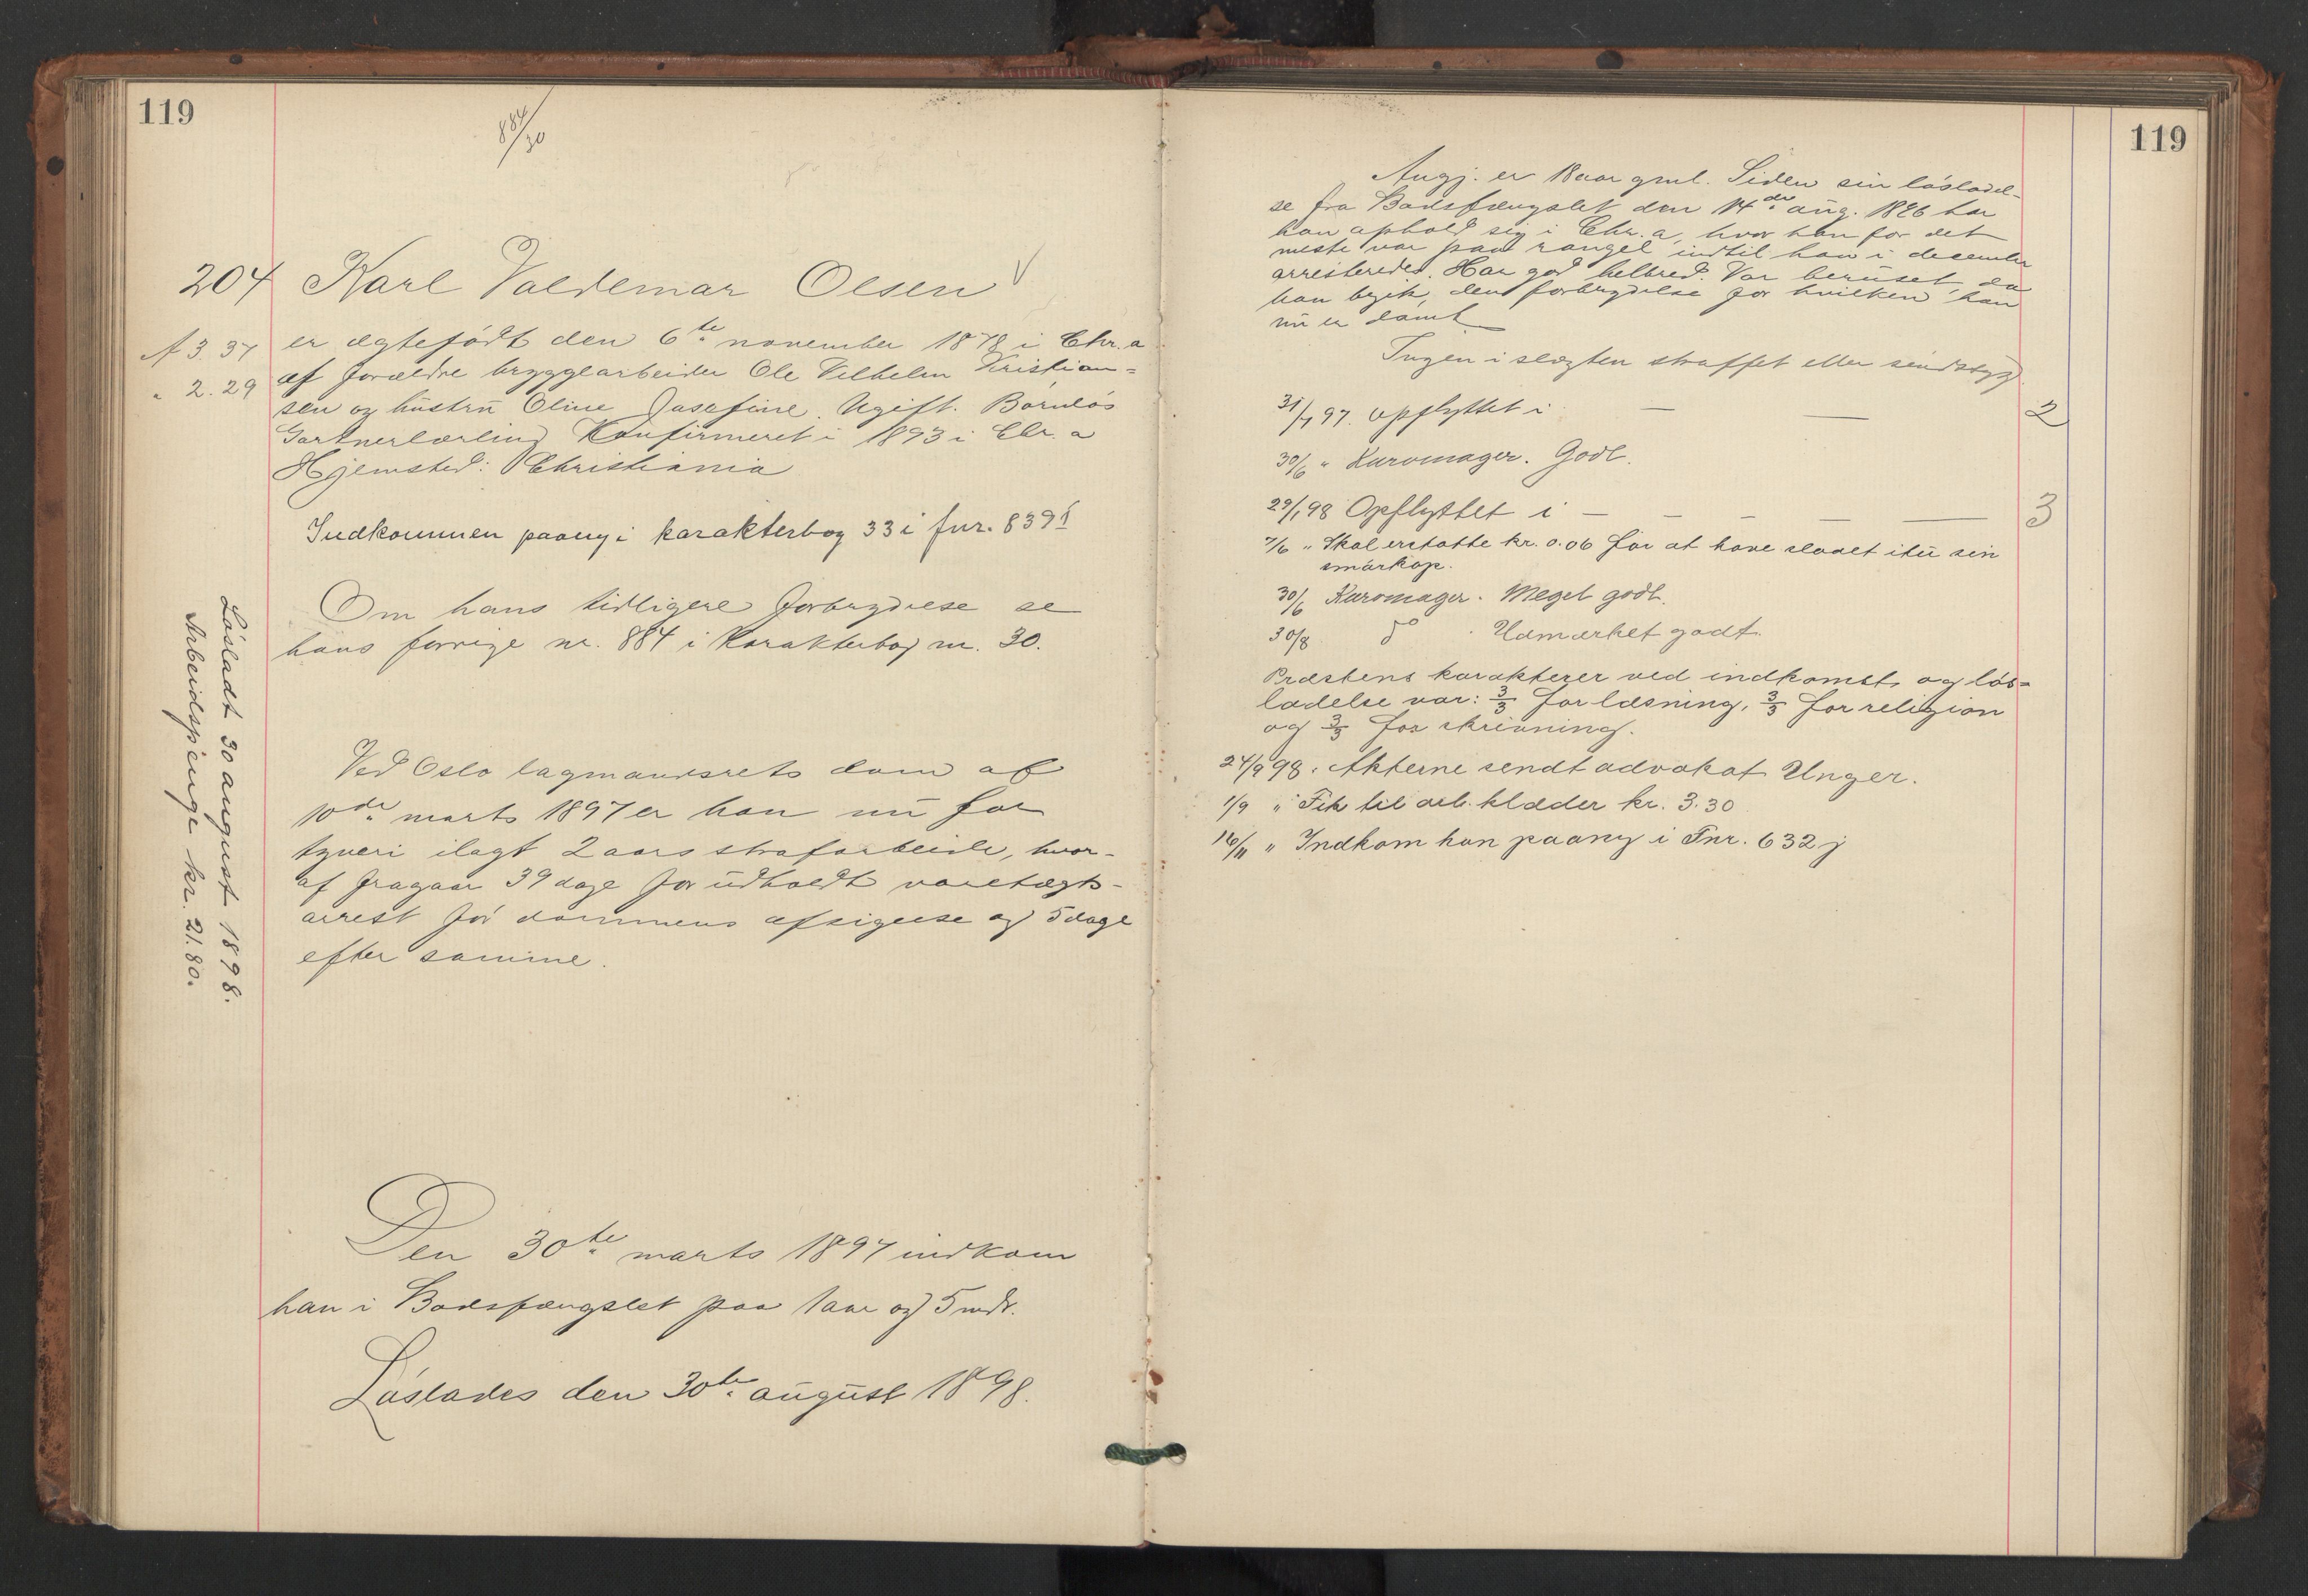 119
884/30
204 Karl Valdemar Olsen V
A 3. 37
" 2. 29
er ægtefødt den 6te november 1878 i Chr.a
af forældre bryggearbeider Ole Vilhelm Kristian=
sen og hustru Oline Josefine. Ugift. Barnløs
Gartnerlærling Konfirmeret i 1893 i Chr.a
Hjemsted: Christiania
Indkommen paany i karakterbog 33 i fnr. 839
Om hans tidligere forbrydelse se
hans forrige nr. 884 i Karakterbog nr. 30.
Løsladt 30 august 1898.
Arbeidspenge kr. 21.80.
Ved Oslo lagmandsrets dom af
10de marts 1897 er han nu for
tyveri ilagt 2 aars strafarbeide, hvor-
af fragaar 39 dage for udholdt varetægts-
arrest før dommens afsigelse og 5 dage
efter samme.
Den 30te marts 1897 indkom
han i Bodsfængslet paa 1 aar og 5 mdr.
Løslades den 30te august 1898.
119
Angj. er 18 aar gml. Siden sin løsladel-
se fra Bodsfængslet den 14de aug. 1896 har
han opholdt sig i Chr.a, hvor han for det
meste var paa rangel indtil han i december
arresteredes. Har god helbred. Var beruset, da
han begik, den forbrydelse for hvilken han
nu er dømt
Ingen i slægten straffet eller sindssyg.
31/7 97. Opflyttet i — — 2
30/6 " Kurvmager. Godt.
29/1 98 Opflyttet i — — — — — 3
7/6 " Skal erstatte kr. 0.06 for at have slaaet itu sin
smørkop.
30/6 Kurvmager. Meget godt.
30/8 do. Udmærket godt.
Præstens karakterer ved indkomst og løs=
ladelse var: 3/3 for læsning, 3/3 for religion
og 3/3 for skrivning.
24/9 98. Akterne sendt advokat Unger.
1/9 " Fik til arb. klæder kr. 3.30
16/11 " Indkom han paany i Fnr. 632 j